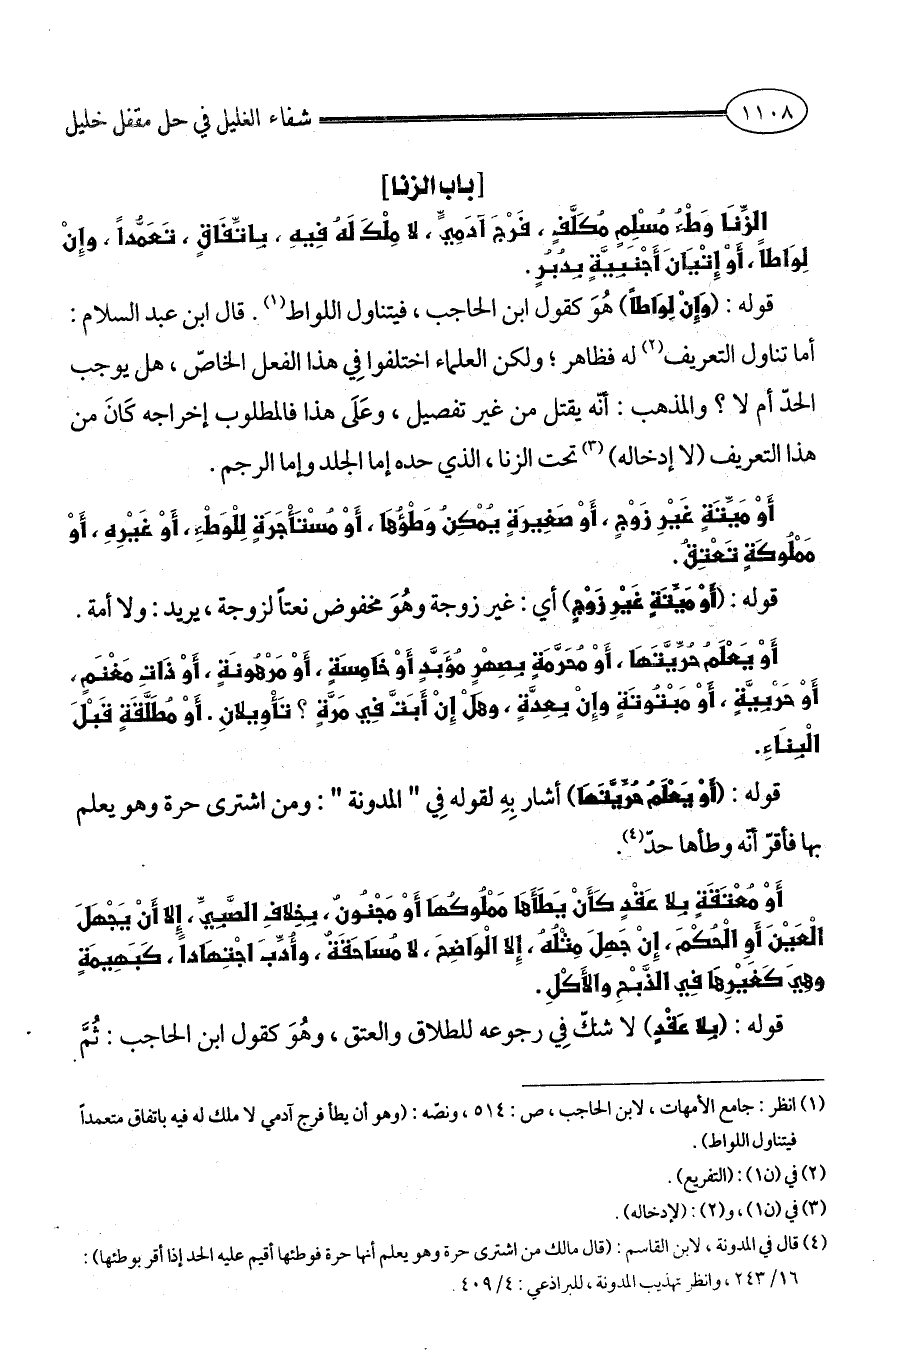 ١١٠٨ شفاء الغليل في حل مقفل خليل
[باب الزنا]
الزِّنَا وَطْءُ مُسْلِمٍ مُكَلَّفٍ ، فَرْجَ آدَمِيٍّ ، لا مِلْكَ لَهُ فِيهِ ، بِاتِّفَاقٍ ، تَعَمُّداً ، وإِنْ
لِوَاطاً ، أَوْ إِتْيَانَ أَجْنَبِيَّةٍ بِدُبُرٍ .
قوله : (وَإِنْ لِوَاطاً) هُوَ كقول ابن الحاجب ، فيتناول اللواط(١) . قال ابن عبد السلام :
أما تناول التعريف(٢) له فظاهر ؛ ولكن العلماء اختلفوا فِي هذا الفعل الخاصّ ، هل يوجب
الحدّ أم لا ؟ والمذهب : أنّه يقتل من غير تفصيل ، وعَلَى هذا فالمطلوب إخراجه كَانَ من
هذا التعريف (لا إدخاله) (٣) تحت الزنا ، الذي حده إما الجلد وإما الرجم .
أَوْ مَيِّتَةٍ غَيْرِ زَوْجٍ ، أَوْ صَغِيرَةٍ يُمْكِنُ وَطْؤُهَا ، أَوْ مُسْتَأْجَرَةٍ لِلْوَطْءِ ، أَوْ غَيْرِهِ ، أَوْ
مَمْلُوكَةٍ تَعْتِقُ .
قوله : (أَوْ مَيِّتَةٍ غَيْرِ زَوْجٍ) أي : غير زوجة وهُوَ مخفوض نعتاً لزوجة ، يريد : ولا أمة .
أَوْ يَعْلَمُ حُرِّيَّتَهَا ، أَوْ مُحَرَّمَةٍ بِصِهْرٍ مُؤَبَّدٍ أَوْ خَامِسَةٍ ، أَوْ مَرْهُونَةٍ ، أَوْ ذَاتِ مَغْنَمٍ ،
أَوْ حَرْبِيَّةٍ ، أَوْ مَبْتُوتَةٍ وإِنْ بِعِدَّةٍ ، وهَلْ إِنْ أَبَتَّ فِي مَرَّةٍ ؟ تَأْوِيلانِ . أَوْ مُطَلَّقَةٍ قَبْلَ
الْبِنَاءِ .
قوله : (أَوْ يَعْلَمُ حُرِّيَّتَهَا) أشار بِهِ لقوله فِي " المدونة " : ومن اشترى حرة وهو يعلم
بها فأقرّ أنّه وطأها حدّ(٤) .
أَوْ مُعْتَقَةٍ بِلا عَقْدٍ كَأَنْ يَطَأَهَا مَمْلُوكُهَا أَوْ مَجْنُونٌ ، بِخِلافِ الصَّبِيِّ ، إِلا أَنْ يَجْهَلَ
الْعَيْنَ أَوِ الْحُكْمَ ، إِنْ جَهِلَ مِثْلُهُ ، إِلا الْوَاضِحَ ، لا مُسَاحَقَةٌ ، وأُدِّبَ اجْتِهَاداً ، كَبَهِيمَةٍ
وهِيَ كَغَيْرِهَا فِي الذَّبْحِ والأَكْلِ .
قوله : (بِلا عَقْدٍ) لا شكّ فِي رجوعه للطلاق والعتق ، وهُوَ كقول ابن الحاجب : ثُمَّ
(١) انظر : جامع الأمهات ، لابن الحاجب ، ص : ٥١٤ ، ونصّه : (وهو أن يطأ فرج آدمي لا ملك له فيه باتفاق متعمداً
فيتناول اللواط) .
(٢) في (ن١) : (التفريع) .
(٣) في (ن١) ، و(٢) : (لإدخاله) .
(٤) قال في المدونة ، لابن القاسم : (قال مالك من اشترى حرة وهو يعلم أنها حرة فوطئها أقيم عليه الحد إذا أقر بوطئها) :
١٦/ ٢٤٣ ، وانظر تهذيب المدونة ، للبراذعي : ٤/ ٤٠٩ .